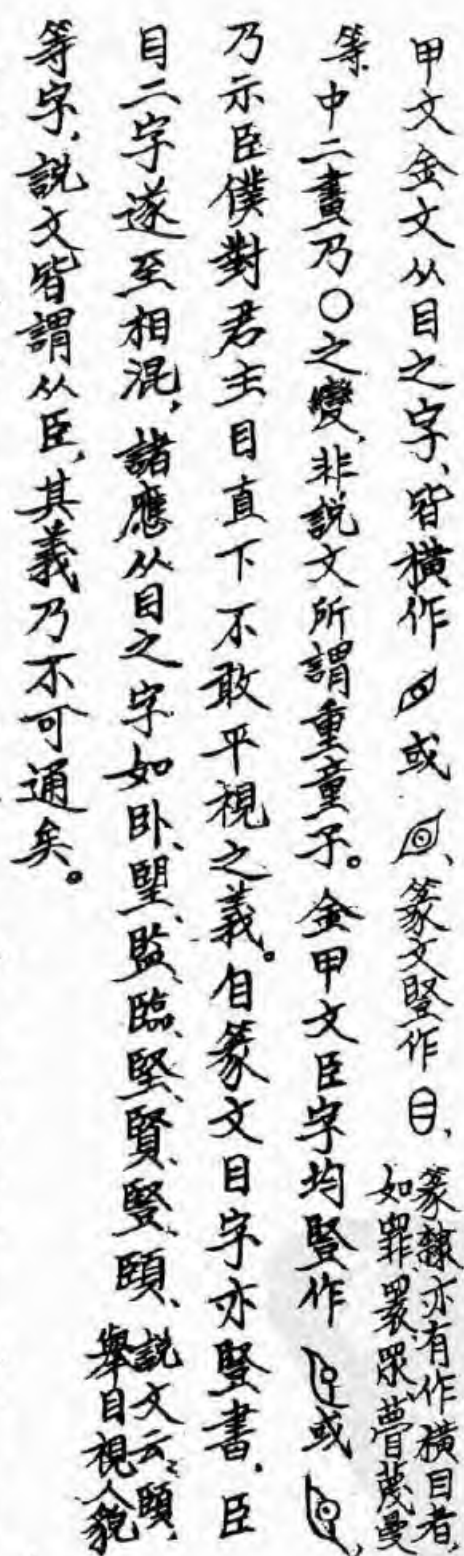 甲文金文从目之字、皆橫作或、篆文竪作、篆隸亦有作橫目者，如罪睘眾瞢蔑曼
等。中二畫乃○之變，非説文所謂重童子。金甲文臣字均竪作或，
乃示臣僕對君主目直下不敢平視之義。自篆文目字亦竪書，臣
目二字遂至相混，諸應从目之字如卧、朢、監、臨、堅、賢、豎、頤、説文云、頤，舉目視人貌
等字，説文皆謂从臣，其義乃不可通矣。